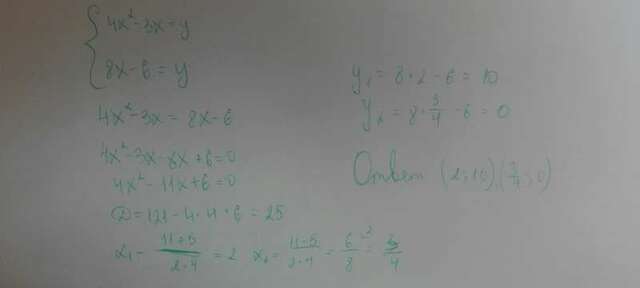 4x²-3x=y
8x-6=y
4x²-3x = 8x-6
4x²-3x-8x+6=0
4x²-11x+6=0
D=121-4·4·6=25
x₁=(11+5)/(2·4)=2 x₂=(11-5)/(2·4)=6/8=3/4
y₁=8·2-6=10
y₂=8·3/4-6=0
Ответ (2;10),(3/4;0)